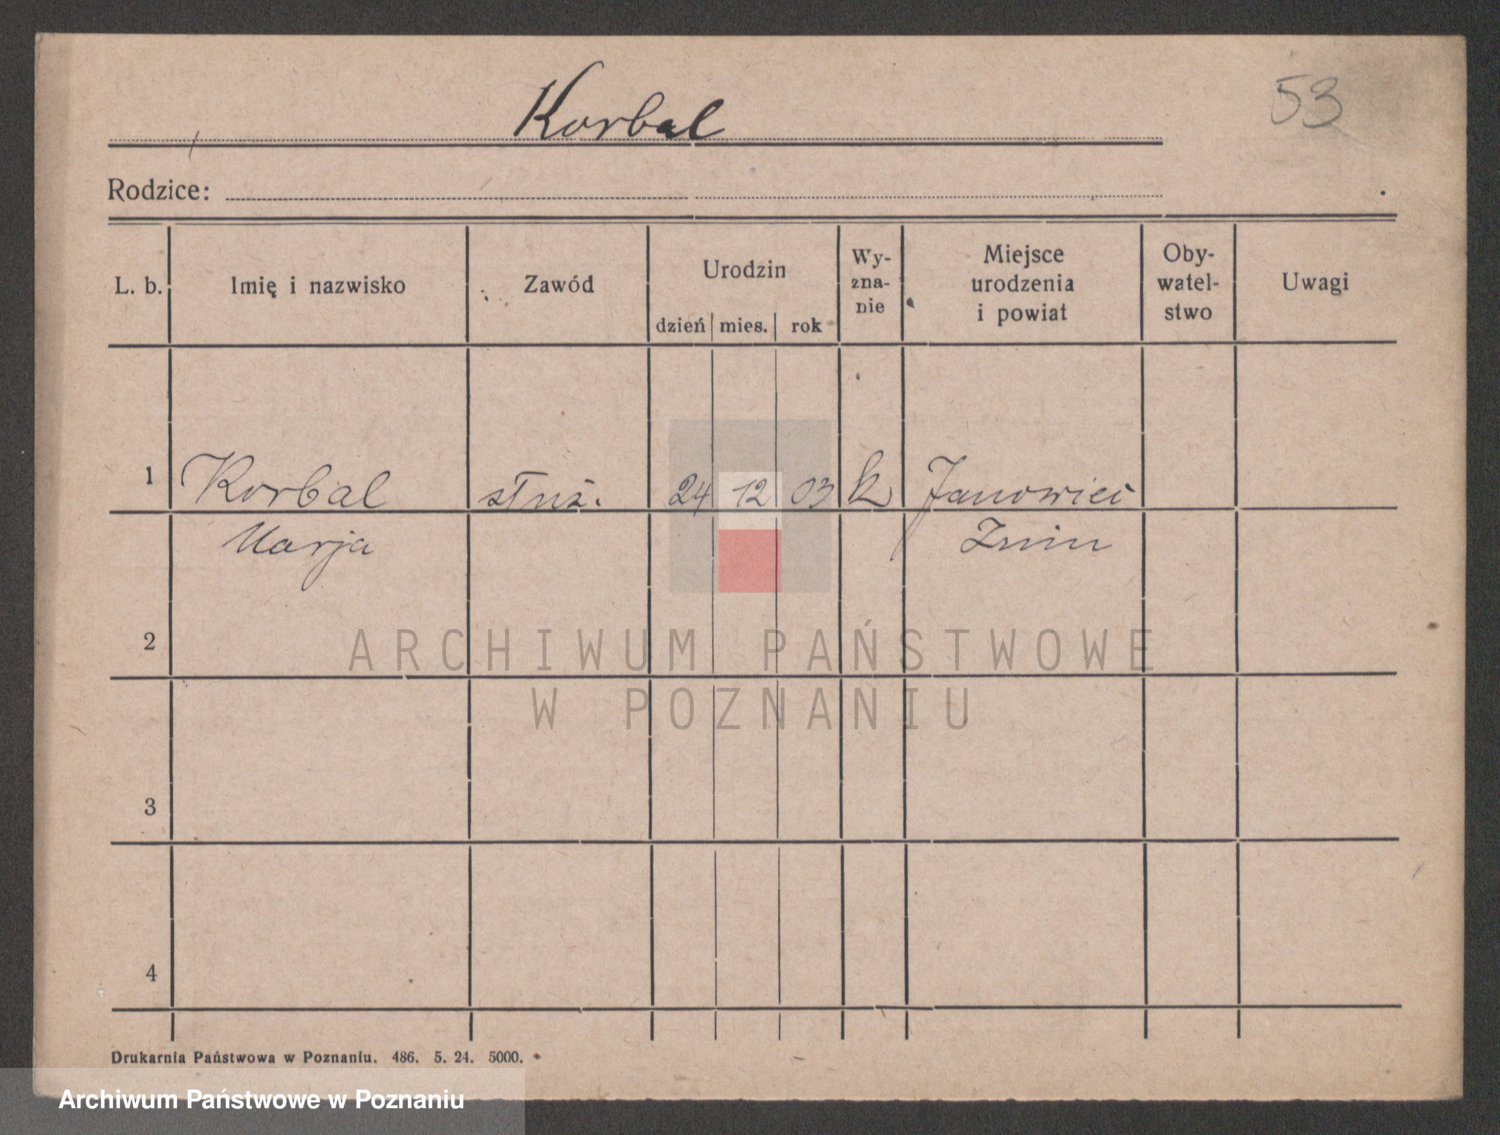 Korbal
53
Rodzice:
L. b.
Imię i nazwisko
Zawód
Urodzin
dzień
mies.
rok
Wy-
zna-
nie
Miejsce
urodzenia
i powiat
Oby-
watel-
stwo
Uwagi
1 Korbal służ. 24 12 03 k Janowiec
Marja Żnin
2
ARCHIWUM PAŃSTWOWE
W POZNANIU
3
4
Drukarnia Państwowa w Poznaniu. 486. 5. 24. 5000.
Archiwum Państwowe w Poznaniu